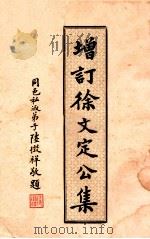 增訂徐文定公集
同邑私淑弟子陸徵祥敬題